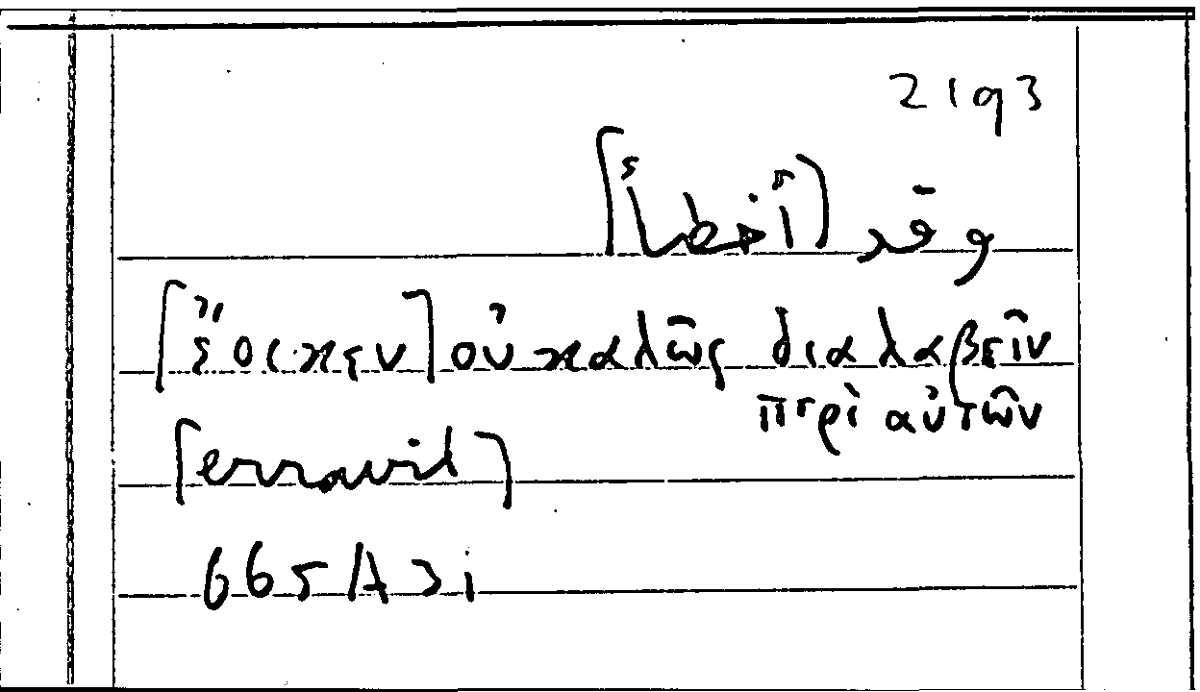 2193
وقد [أخطأ]
[ἔοικεν] οὐ καλῶς διαλαβεῖν
περὶ αὐτῶν
[erravit]
665A31